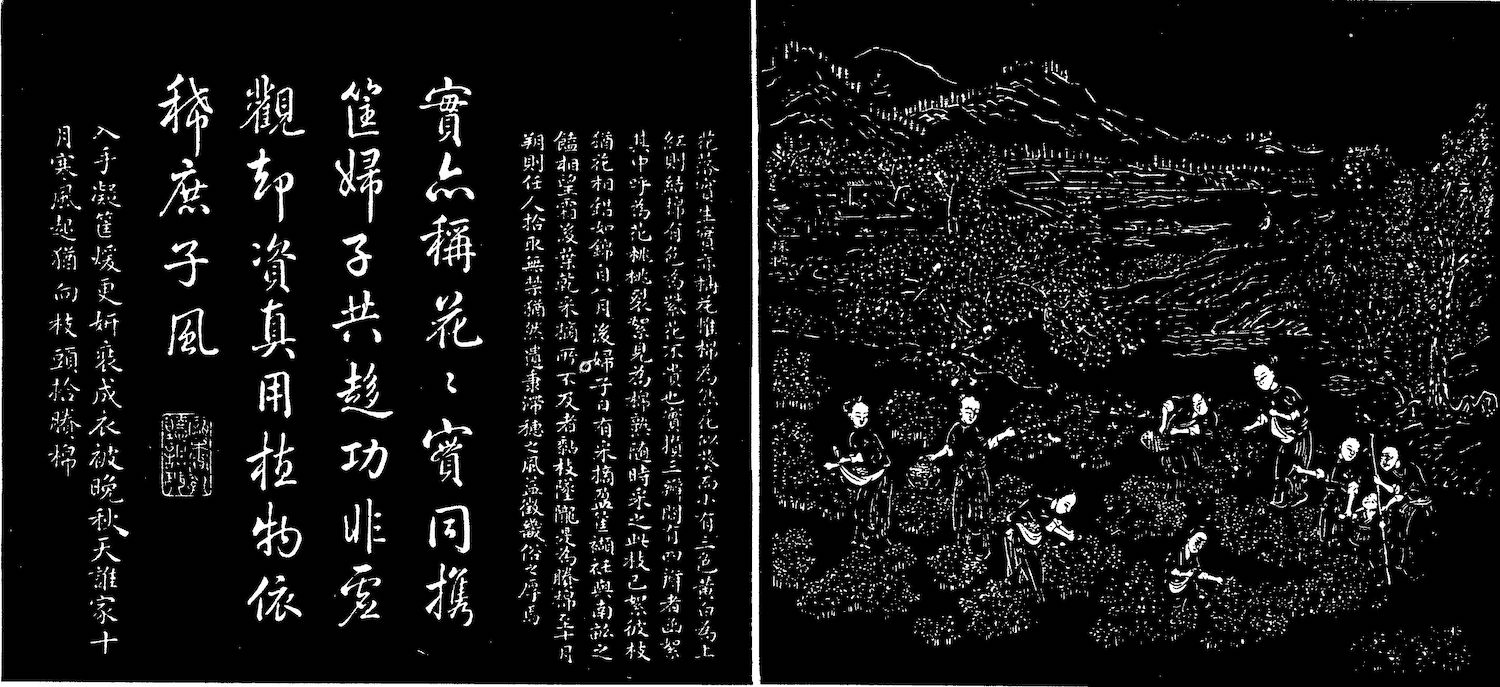 花落實生實亦稱花惟棉為然花似葵而小有三色黃白為上
紅則結棉有色為紫花不貴也實攢三瓣間有四瓣者函絮
其中呼為花桃桃裂絮見為棉熟隨時采之此枝已絮彼枝
猶花相錯如錦自八月後婦子日有采摘盈筐襭衽與南畝之
饁相望霜後葉乾采摘所不及者黏枝墜隴是為賸棉至十月
朔則任人拾取無禁猶然遺秉滯穗之風益徵畿俗之厚焉
實亦稱花〻實同携
筐婦子共趍功非虛
觀却資真用植物依
稀庶子風
入手凝筐煖更妍裘成衣被晚秋天誰家十
月寒風起猶向枝頭拾賸棉